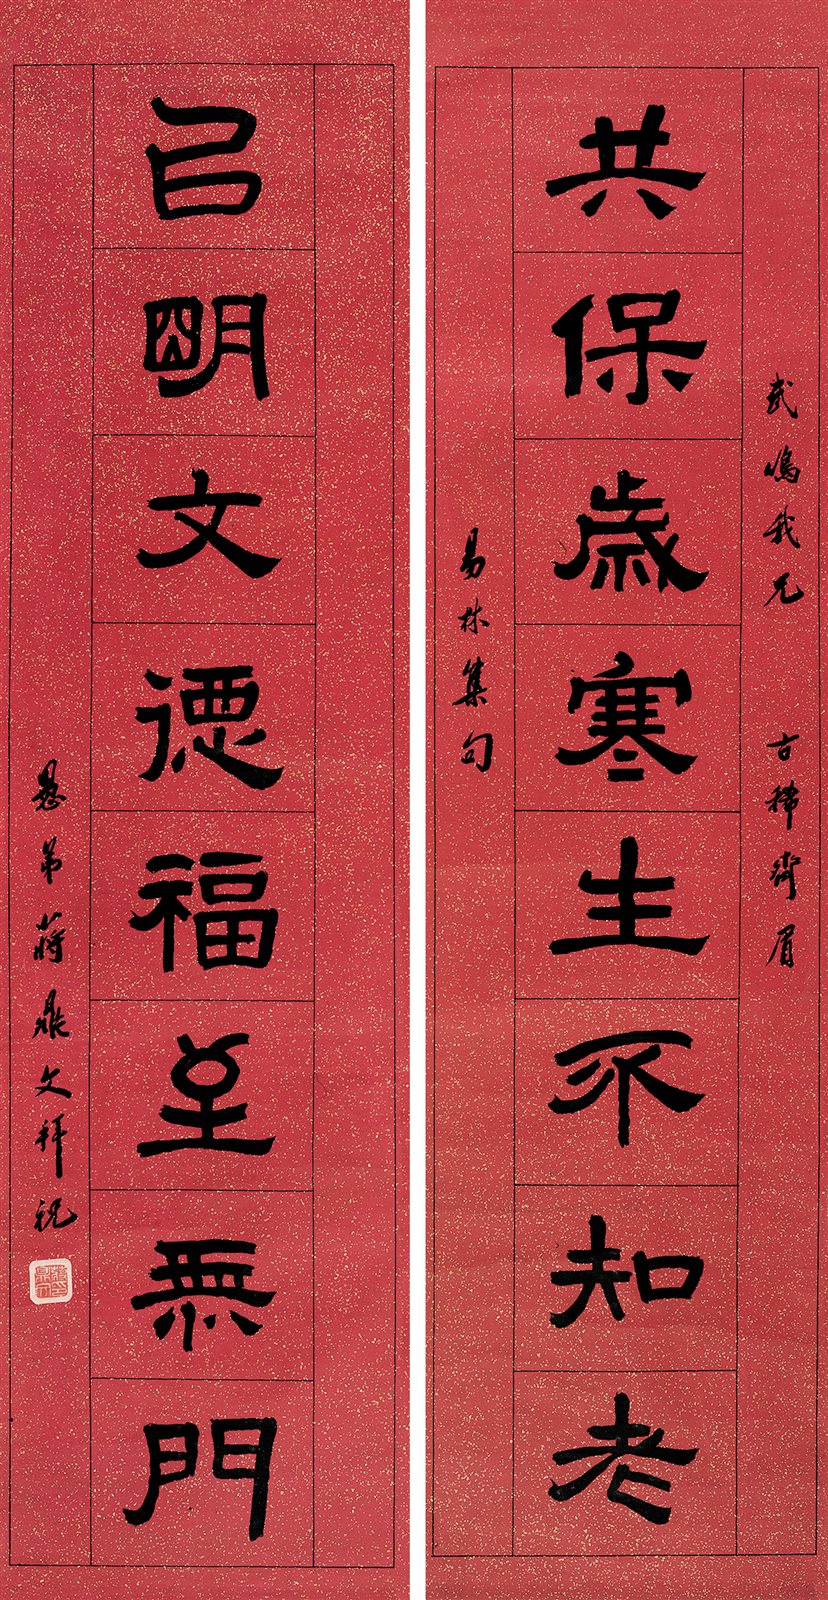 武鳴我兄 古稀齊眉
共保歲寒生不知老
易林集句
㠯朙文德福至無門
愚弟蔣鼎文拜祝